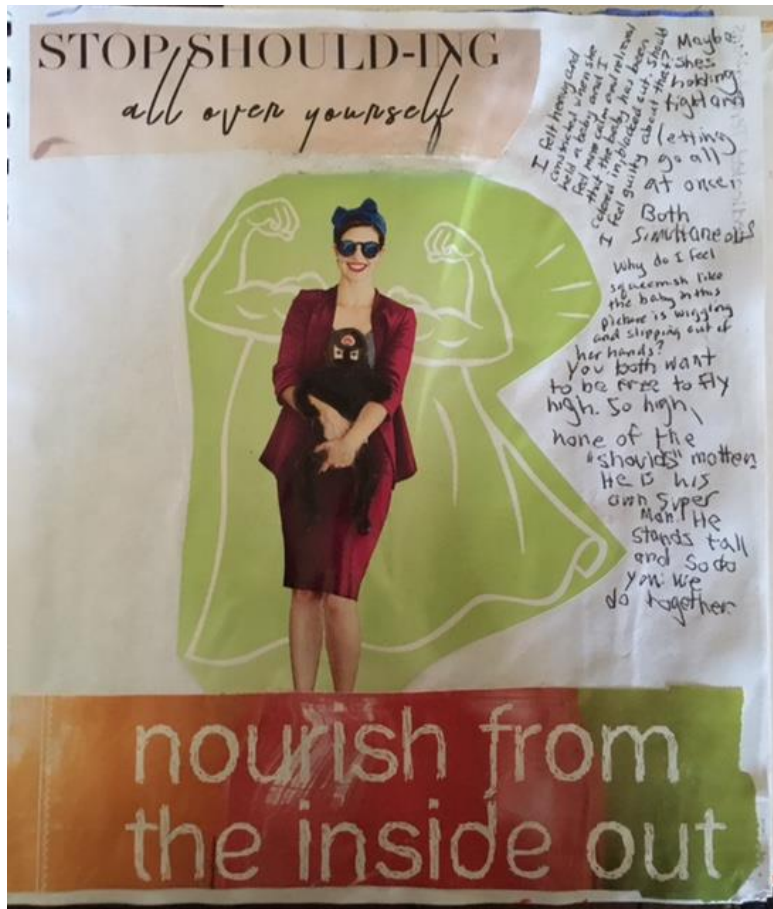 STOP SHOULD-ING
all over yourself
I felt heavy and
constricted when she
held a baby and I
feel more calm and relieved
that the baby has been
colored in, blacked out. Should
I feel guilty about that?
Maybe
she's
holding
tight and
letting
go all
at once.
Both
Simultaneous
Why do I feel
squeemish like
the baby in this
picture is wiggling
and slipping out of
her hands?
You both want
to be free to fly
high. So high,
none of the
"shoulds" matter.
He is his
own Super
Man. He
stands tall
and so do
you. We
do together.
nourish from
the inside out